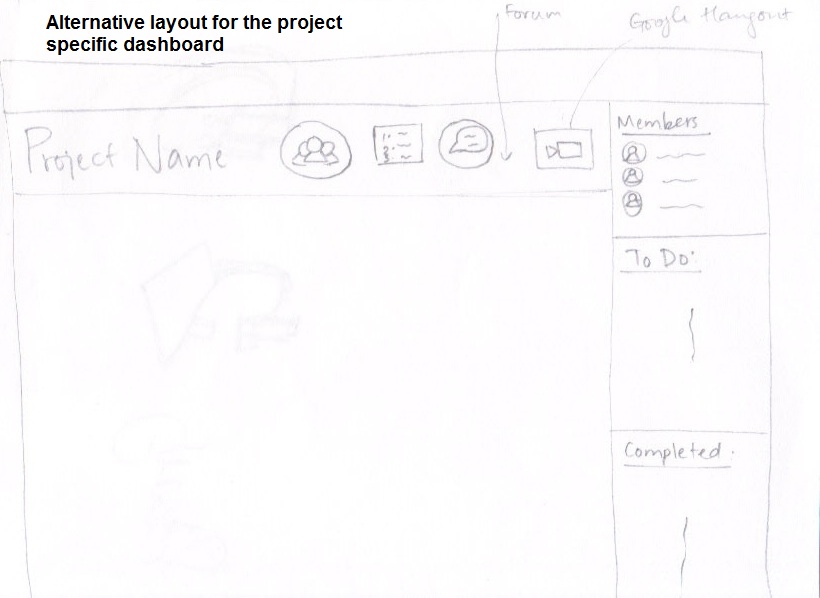 Alternative layout for the project
specific dashboard
Forum
Google Hangout
Project Name
Members
To Do:
Completed.